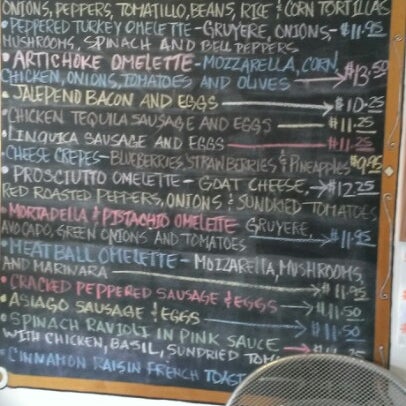 ONIONS, PEPPERS, TOMATILLO, BEANS, RICE & CORN TORTILLAS
• PEPPERED TURKEY OMELETTE - GRUYERE, ONIONS - $11.95
MUSHROOMS, SPINACH AND BELL PEPPERS
• ARTICHOKE OMELETTE - MOZZARELLA, CORN,
CHICKEN, ONIONS, TOMATOES AND OLIVES $13.50
• JALEPENO BACON AND EGGS $10.25
• CHICKEN TEQUILA SAUSAGE AND EGGS $11.25
• LINQUICA SAUSAGE AND EGGS $11.25
CHEESE CREPES - BLUEBERRIES, STRAWBERRIES & PINEAPPLES $9.95
• PROSCIUTTO OMELETTE - GOAT CHEESE, $12.25
RED ROASTED PEPPERS, ONIONS & SUNDRIED TOMATOES
• MORTADELLA & PISTACHIO OMELETTE GRUYERE,
AVOCADO, GREEN ONIONS AND TOMATOES $11.95
• MEATBALL OMELETTE - MOZZARELLA, MUSHROOMS
AND MARINARA $11.95
• CRACKED PEPPERED SAUSAGE & EGGS $11.50
• ASIAGO SAUSAGE & EGGS $11.50
• SPINACH RAVIOLI IN PINK SAUCE
WITH CHICKEN, BASIL, SUNDRIED
• CINNAMON RAISIN FRENCH TOAST